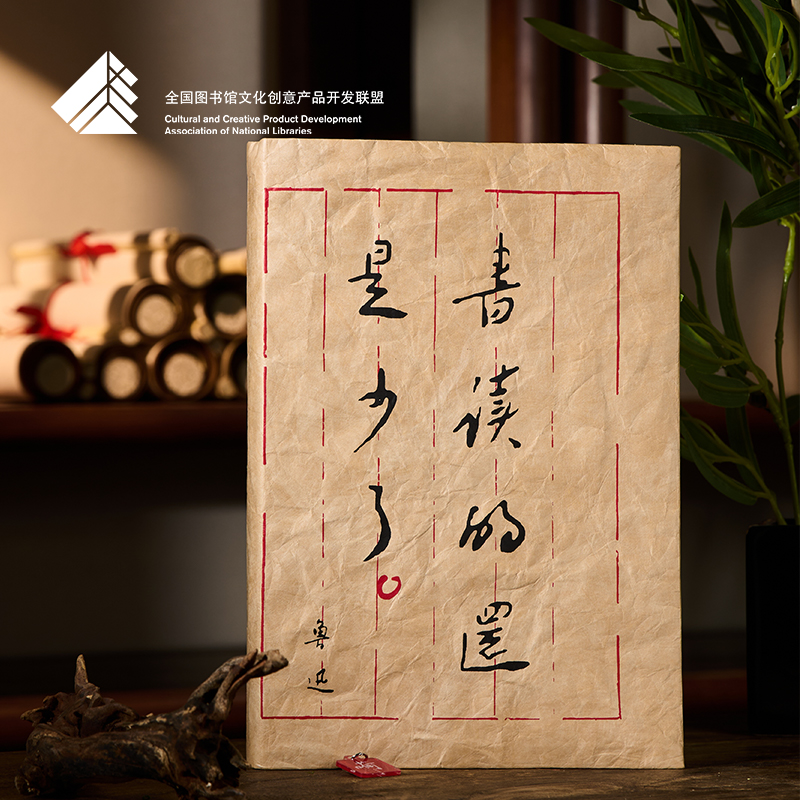 全国图书馆文化创意产品开发联盟
Cultural and Creative Product Development
Association of National Libraries
书读的还
是少了。
鲁迅